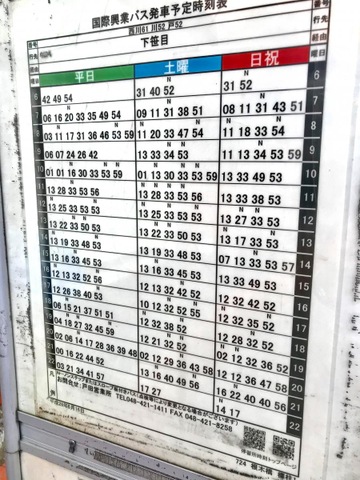 国際興業バス発車予定時刻表
西川61 川52 戸52
下笹目
番号
行先
経由
曜日
平日
土曜
日祝
番号
行先
経由
曜日
6 42 49 54
31 40 52
31 52 6
7 06 16 20 33 35 49 54
09 11 31 38 51
08 11 31 43 51 7
8 03 11 17 31 36 46 53 59
11 20 33 47 54
11 18 33 54 8
9 06 07 24 26 42
13 33 34 53
11 13 34 53 59 9
10 01 01 16 30 33 53 59
01 13 30 33 53 59
13 33 49 53 10
11 13 28 33 53 56
13 28 33 53 56
13 33 38 53 11
12 13 25 33 53 53
13 25 33 53 53
13 27 33 53 12
13 13 22 33 50 53
13 22 33 50 53
13 17 33 53 13
14 13 19 33 48 53
13 19 33 48 53
07 13 33 53 57 14
15 13 16 33 45 53
13 16 33 45 53
13 33 49 53 15
16 12 13 32 52 56
13 13 32 42 52
12 32 42 52 16
17 12 26 38 40 53
10 12 32 52 55
12 32 35 52 17
18 06 15 21 37 51 51
12 32 38 52
12 32 32 52 18
19 04 18 27 32 45 59
12 23 32 52
02 12 32 36 52 19
20 02 06 14 17 28 36 39 48
02 12 29 36 43 58
12 12 36 47 58 20
21 00 16 22 44 52
13 16 40 49 56
16 22 40 40 56 21
22 03 21 34 41 57
17 27
14 17 22
凡例
【お問合せ】戸田営業所 TEL048-421-1411 FAX 048-421-8258